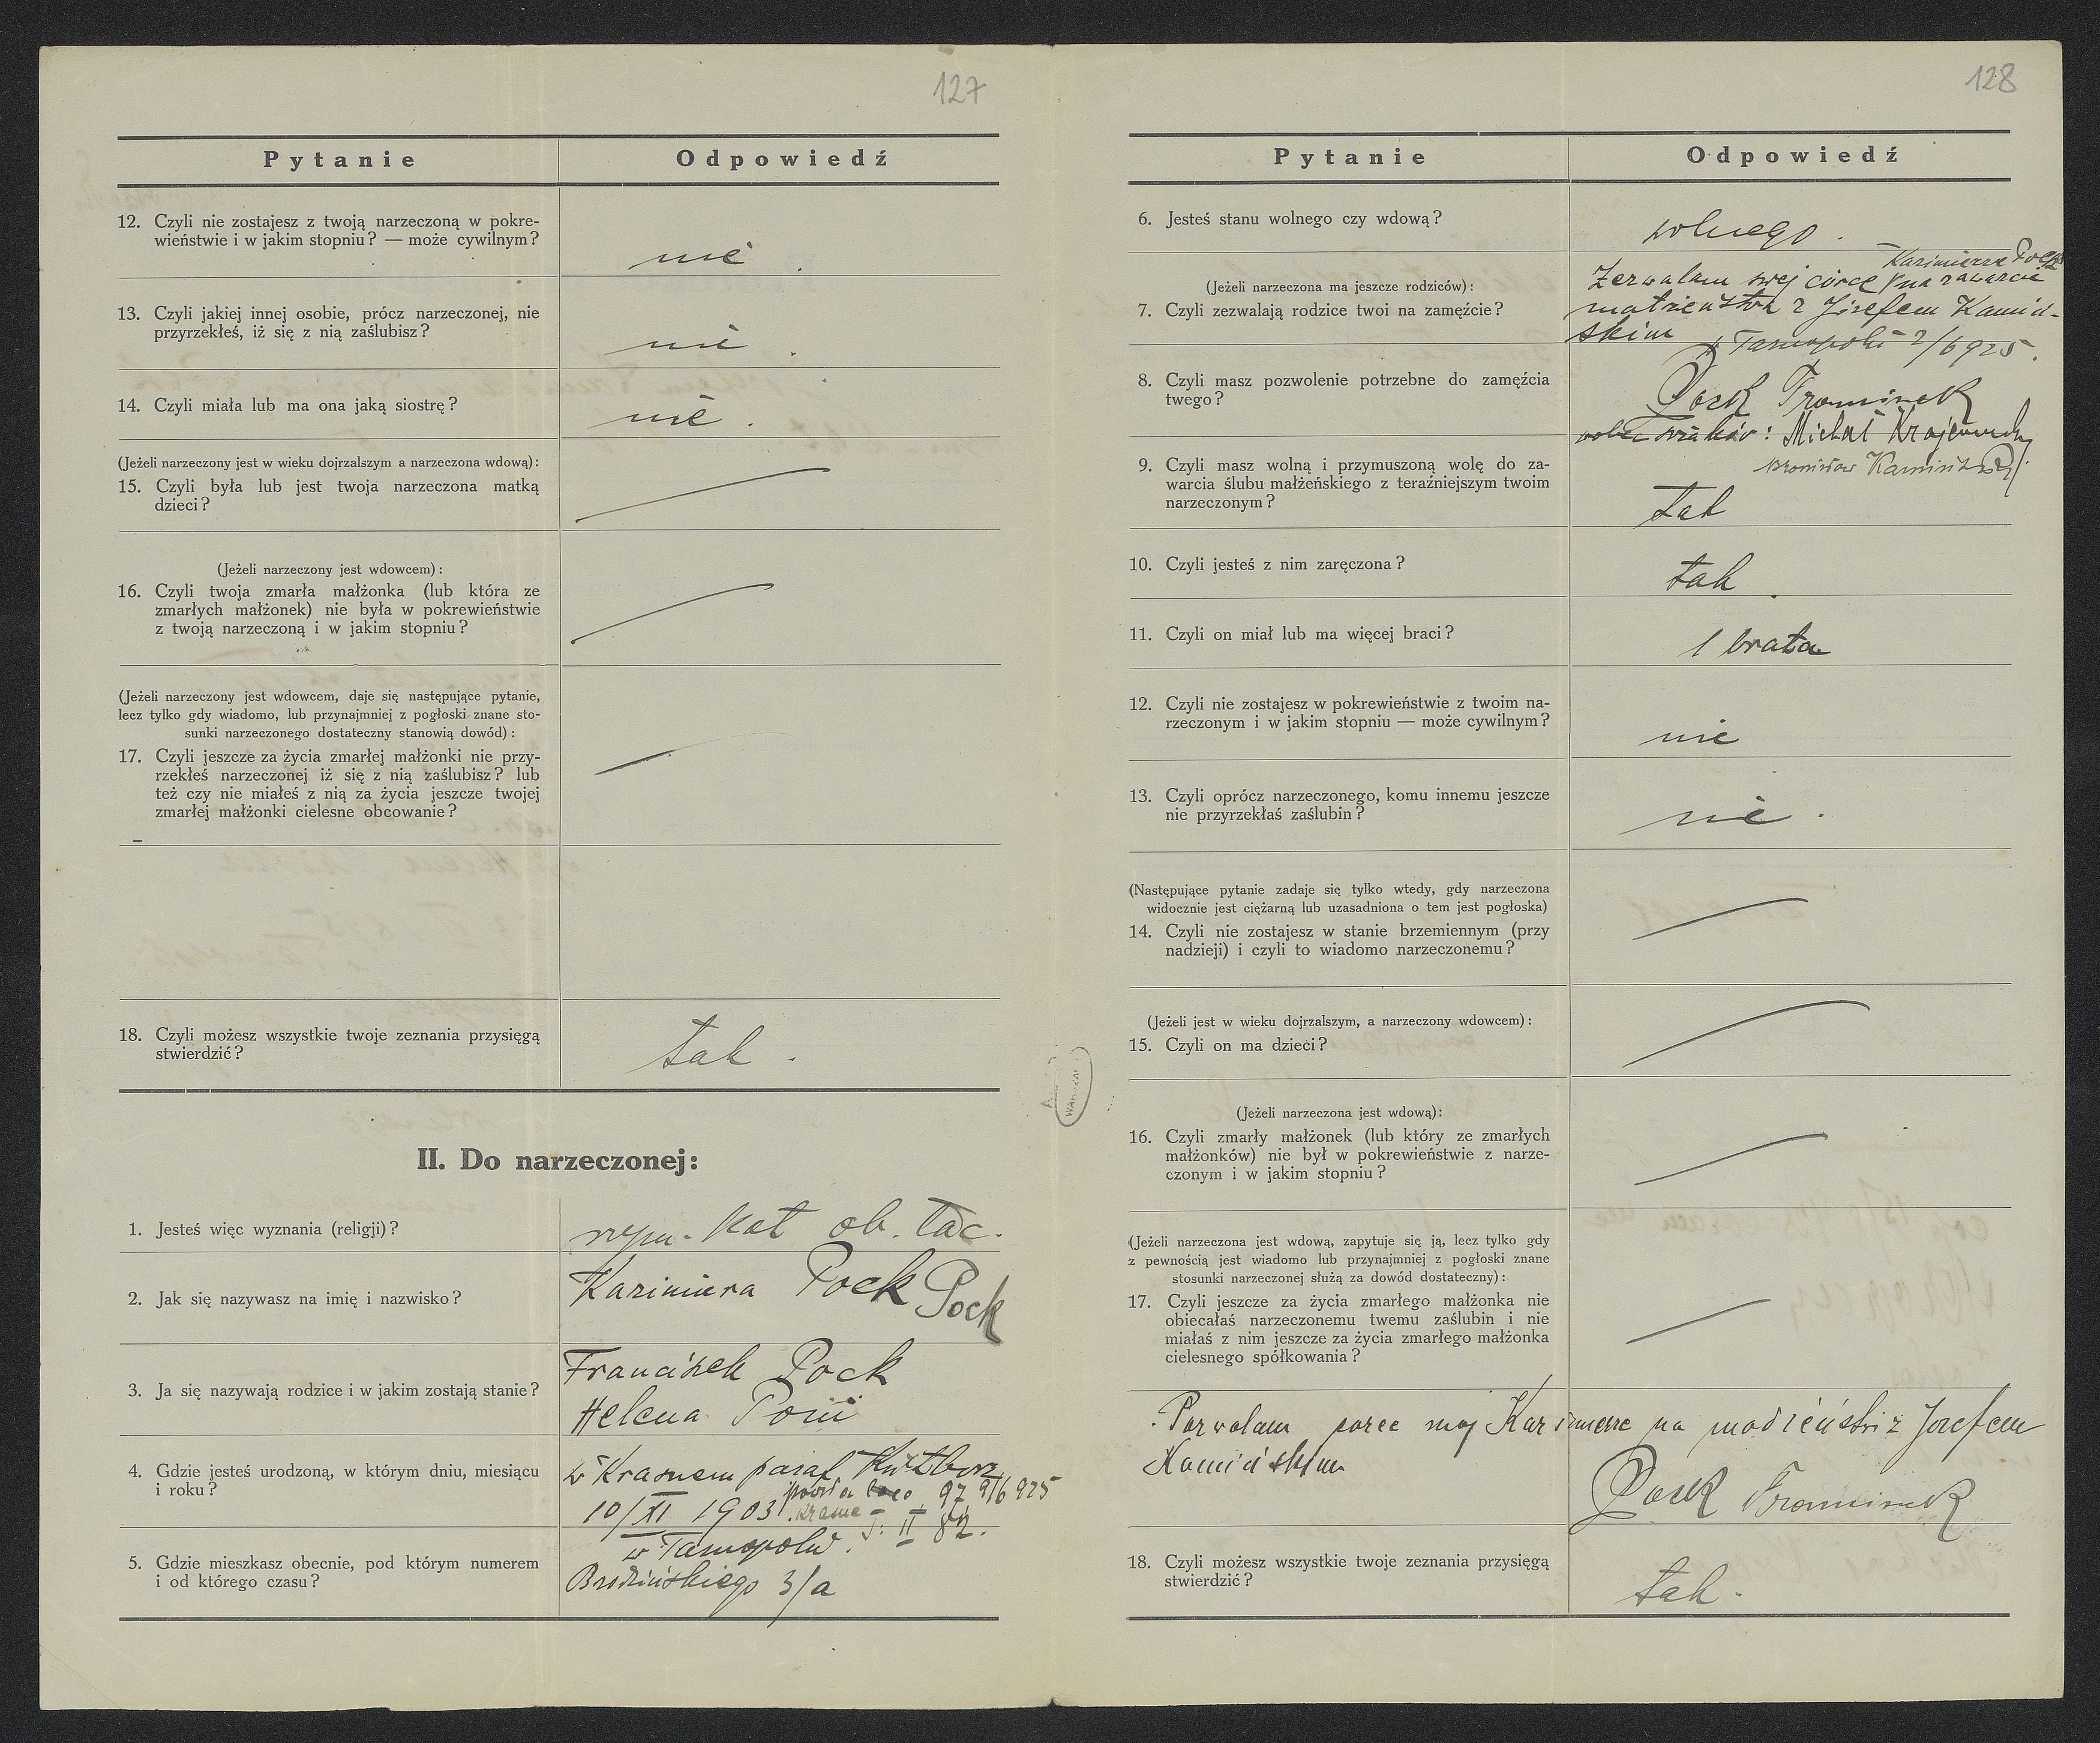 127
Pytanie Odpowiedź
12. Czyli nie zostajesz z twoją narzeczoną w pokre-
wieństwie i w jakim stopniu? — może cywilnym?
nie .
13. Czyli jakiej innej osobie, prócz narzeczonej, nie
przyrzekłeś, iż się z nią zaślubisz?
nie .
14. Czyli miała lub ma ona jaką siostrę?
nie .
(Jeżeli narzeczony jest w wieku dojrzalszym a narzeczona wdową):
15. Czyli była lub jest twoja narzeczona matką
dzieci?
(Jeżeli narzeczony jest wdowcem):
16. Czyli twoja zmarła małżonka (lub która ze
zmarłych małżonek) nie była w pokrewieństwie
z twoją narzeczoną i w jakim stopniu?
(Jeżeli narzeczony jest wdowcem, daje się następujące pytanie,
lecz tylko gdy wiadomo, lub przynajmniej z pogłoski znane sto-
sunki narzeczonego dostateczny stanowią dowód):
17. Czyli jeszcze za życia zmarłej małżonki nie przy-
rzekłeś narzeczonej iż się z nią zaślubisz? lub
też czy nie miałeś z nią za życia jeszcze twojej
zmarłej małżonki cielesne obcowanie?
18. Czyli możesz wszystkie twoje zeznania przysięgą
stwierdzić?
tak .
II. Do narzeczonej:
1. Jesteś więc wyznania (religji)?
rzym. kat ob. łac.
2. Jak się nazywasz na imię i nazwisko?
Kazimiera Pock Pock
3. Ja się nazywają rodzice i w jakim zostają stanie?
Franciszek Pock
Helena
4. Gdzie jesteś urodzoną, w którym dniu, miesiącu
i roku?
w Krasnem paraf
10/XI 1903 97 9/6 925
Krasne T. II 82.
5. Gdzie mieszkasz obecnie, pod którym numerem
i od którego czasu?
w Tarnopolu .
Brodzińskiego 3/a
128
Pytanie Odpowiedź
6. Jesteś stanu wolnego czy wdową?
wolnego .
(Jeżeli narzeczona ma jeszcze rodziców):
7. Czyli zezwalają rodzice twoi na zamęźcie?
Kazimierze Pock
Zezwalam swej córce na zawarcie
małżeństwa z Józefem Kamiń-
skim
w Tarnopolu 2/6 925.
8. Czyli masz pozwolenie potrzebne do zamęźcia
twego?
Pock
wobec świadków: Michał Krajewski
Bronisław Kamiński
9. Czyli masz wolną i przymuszoną wolę do za-
warcia ślubu małżeńskiego z teraźniejszym twoim
narzeczonym?
tak
10. Czyli jesteś z nim zaręczona?
tak .
11. Czyli on miał lub ma więcej braci?
1 brata
12. Czyli nie zostajesz w pokrewieństwie z twoim na-
rzeczonym i w jakim stopniu — może cywilnym?
nie
13. Czyli oprócz narzeczonego, komu innemu jeszcze
nie przyrzekłaś zaślubin?
nie .
(Następujące pytanie zadaje się tylko wtedy, gdy narzeczona
widocznie jest ciężarną lub uzasadniona o tem jest pogłoska)
14. Czyli nie zostajesz w stanie brzemiennym (przy
nadzieji) i czyli to wiadomo narzeczonemu?
(Jeżeli jest w wieku dojrzalszym, a narzeczony wdowcem):
15. Czyli on ma dzieci?
(Jeżeli narzeczona jest wdową):
16. Czyli zmarły małżonek (lub który ze zmarłych
małżonków) nie był w pokrewieństwie z narze-
czonym i w jakim stopniu?
(Jeżeli narzeczona jest wdową, zapytuje się ją, lecz tylko gdy
z pewnością jest wiadomo lub przynajmniej z pogłoski znane
stosunki narzeczonej służą za dowód dostateczny):
17. Czyli jeszcze za życia zmarłego małżonka nie
obiecałaś narzeczonemu twemu zaślubin i nie
miałaś z nim jeszcze za życia zmarłego małżonka
cielesnego spółkowania?
Pozwolam moj Kazimierze na z Jozefem
Kamińskim
Pock
18. Czyli możesz wszystkie twoje zeznania przysięgą
stwierdzić?
tak .